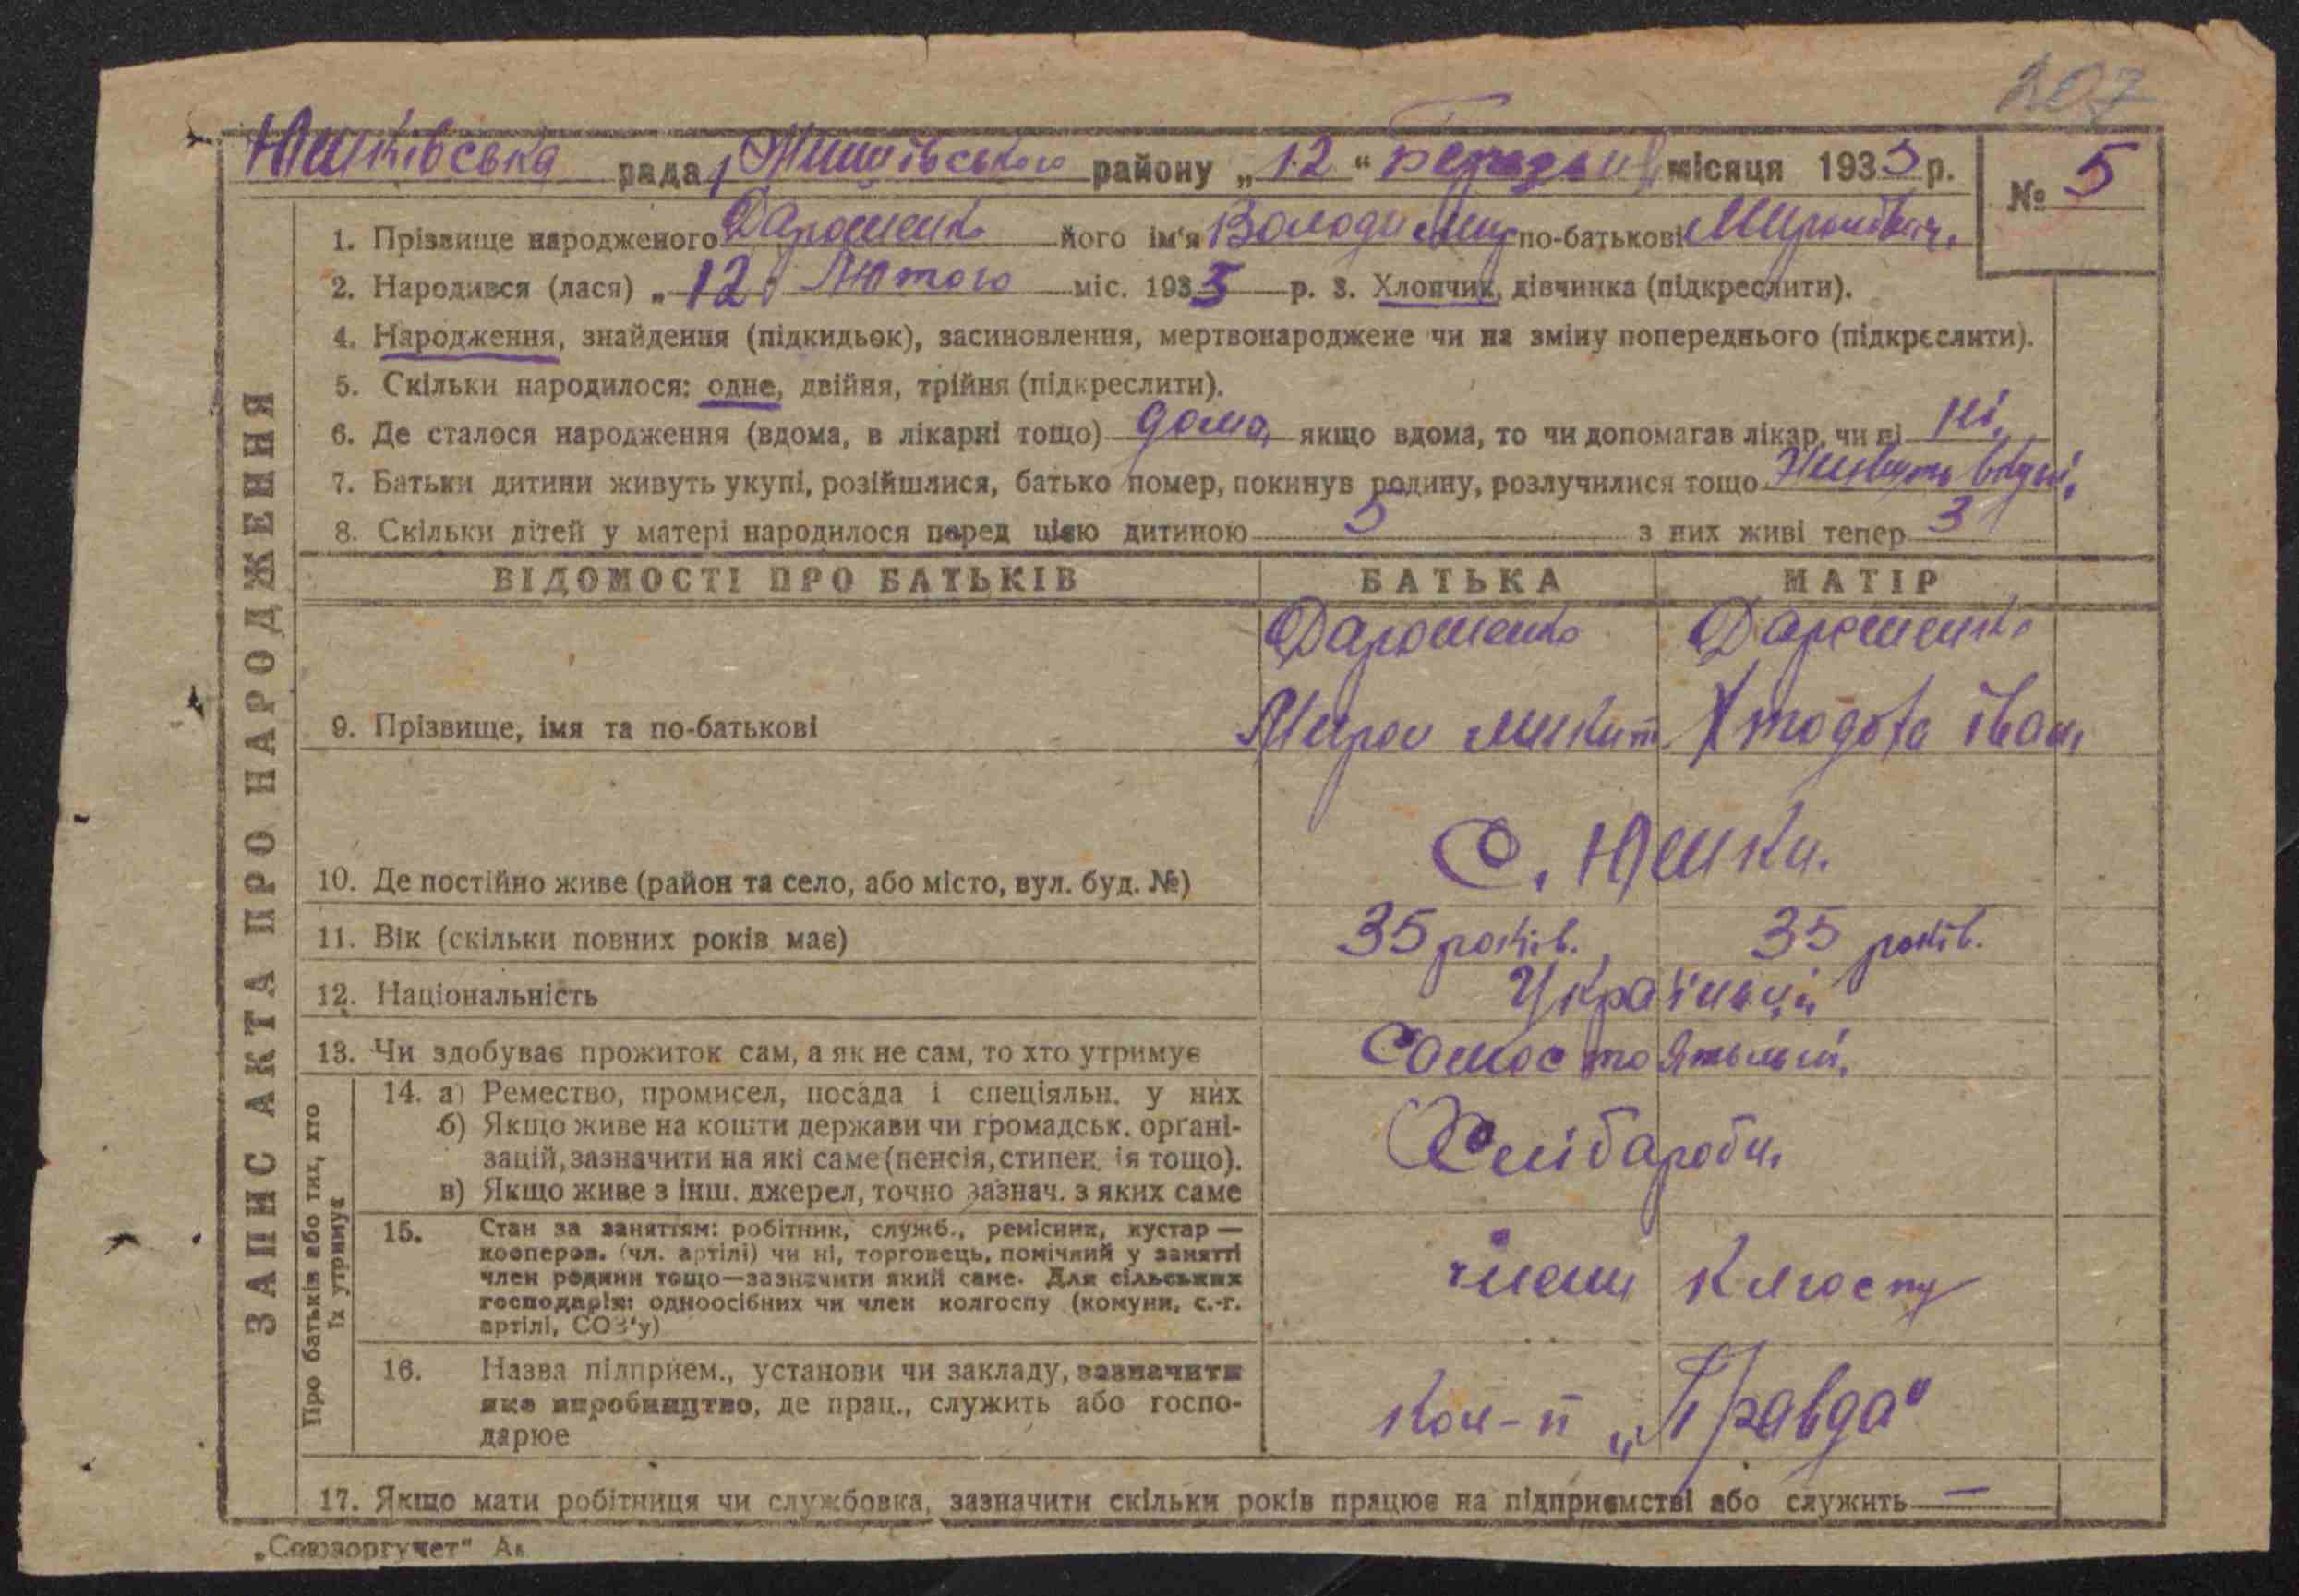 207
Юшківська рада, района „12“ місяця 1935 р. № 5
1. Прізвище народженого Дарошенко його ім'я Володимир по-батькові Миронович,
2. Народився (лася) „12„ Лютого міс. 1935 р. 3. Хлопчик, дівчинка (підкреслити).
4. Народження, знайдення (підкидьок), засиновлення, мертвонароджене чи на зміну попереднього (підкреслити).
5. Скільки народилося: одне, двійня, трійня (підкреслити).
6. Де сталося народження (вдома, в лікарні тощо) дома, якщо вдома, то чи допомагав лікар, чи ні ні,
7. Батьки дитини живуть укупі, розійшлися, батько помер, покинув родину, розлучилися тощо Живуть вкупі,
8. Скільки дітей у матері народилося перед цією дитиною 5 з них живі тепер 3
ЗАПИС АКТА ПРО НАРОДЖЕННЯ
ВІДОМОСТІ ПРО БАТЬКІВ БАТЬКА МАТІР
Дарошенко Дарошенко
9. Прізвище, імя та по-батькові Мирон Микит. Іван,
10. Де постійно живе (район та село, або місто, вул. буд. №) С. Юшки.
11. Вік (скільки повних років має) 35 років. 35 років.
12. Національність Українці
13. Чи здобуває прожиток сам, а як не сам, то хто утримує Самостоятельні,
Про батьків або тих, хто їх утримує
14. а) Ремество, промисел, посада і спеціяльн. у них
б) Якщо живе на кошти держави чи громадськ. органі-
зацій, зазначити на які саме (пенсія, стипен. ія тощо). Хлібароби,
в) Якщо живе з інш. джерел, точно зазнач. з яких саме
15. Стан за заняттям: робітник, служб., ремісник, кустар —
кооперов. (чл. артілі) чи ні, торговець, помічний у занятті
член родини тощо—зазначити який саме. Для сільських члени
господарів: одноосібних чи член колгоспу (комуни, с.-г.
артілі, СОЗ'у)
16. Назва підприєм., установи чи закладу, зазначити
яке виробництво, де прац., служить або госпо- Кол-п „Правда“
дарює
17. Якщо мати робітниця чи службовка, зазначити скільки років працює на підприємстві або служить —
„Союзоргучет“